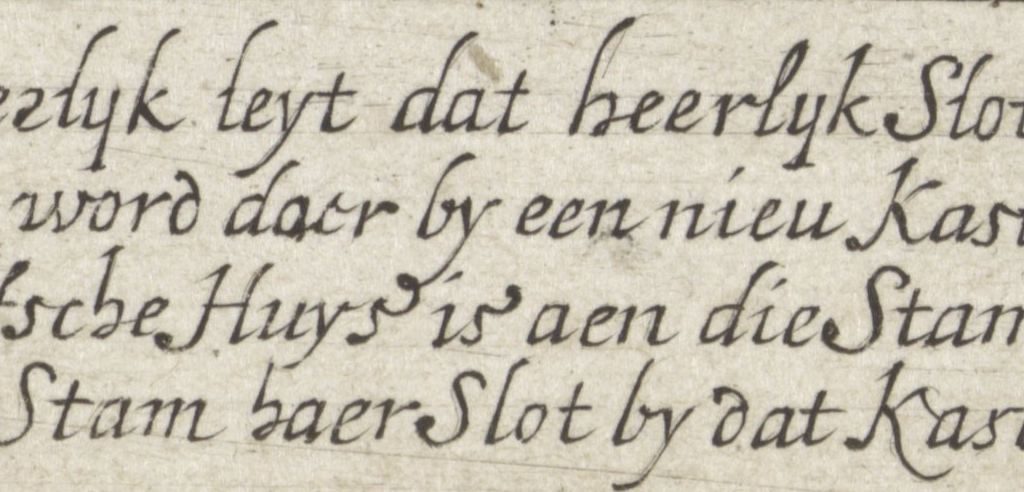 erlyk leyt dat heerlyk Slot
word daer by een nieu Kast
tsche Huys is aen die Stam
Stam haer Slot by dat Kast